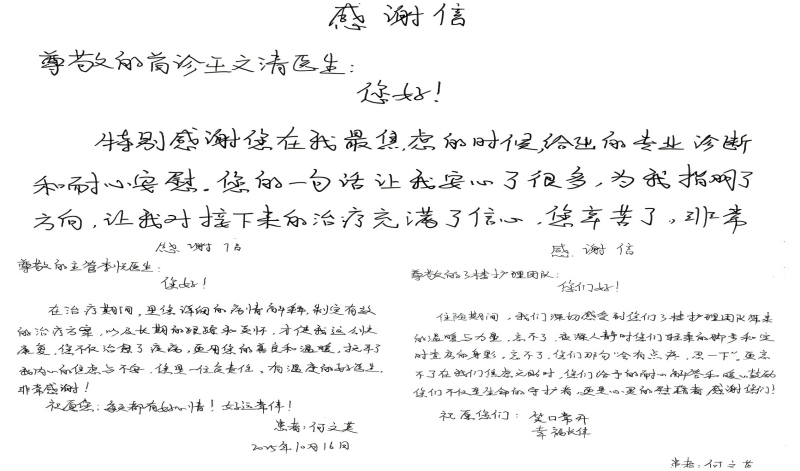 感谢信
尊敬的首诊王文清医生：
您好！
特别感谢您在我最焦虑的时候，给出的专业诊断
和耐心安慰。您的一句话让我安心了很多，为我指明了
方向，让我对接下来的治疗充满了信心。您辛苦了，非常
感谢信
尊敬的主管李悦医生：
您好！
在治疗期间，是您详细的病情解释，制定有效
的治疗方案，以及长期的跟踪和关怀，才使我这么快
康复，您不仅治愈了疾病，更用您的善良和温暖，抚平了
我内心的焦虑与不安，您是一位负责任，有温度的好医生，
非常感谢！
祝愿您：每天都有好心情！好运常伴！
患者：何文英
2025年10月16日
感谢信
尊敬的3楼护理团队：
您们好！
住院期间，我们深切感受到你们3楼护理团队带来
的温暖与力量，忘不了，夜深人静时你们轻柔的脚步和定
时查房的身影，忘不了，你们那句"会有点疼，忍一下"，更忘
不了在我们焦虑之时，你们给予的耐心解答和暖心鼓励
你们不仅是生命的守护者，更是心灵的慰藉者 感谢你们！
祝愿你们：笑口常开
幸福长伴
患者：何文英